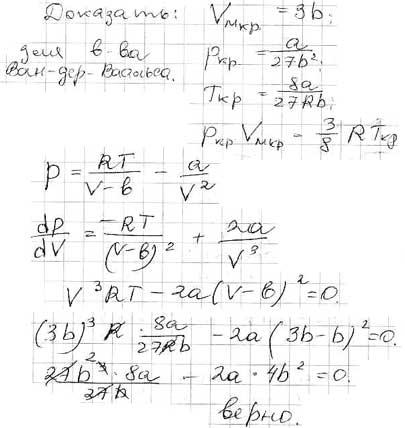 Доказать: V_мкр = 3b;
для в-ва Ван-дер-Ваальса.
p_кр = a/27b²;
T_кр = 8a/27Rb;
p_кр V_мкр = 3/8 R T_кр
p = RT/V-b - a/V²
dp/dV = -RT/(V-b)² + 2a/V³
V³RT - 2a(V-b)² = 0.
(3b)³ R 8a/27Rb - 2a(3b-b)² = 0.
27b²³·8a/27b - 2a·4b² = 0.
верно.